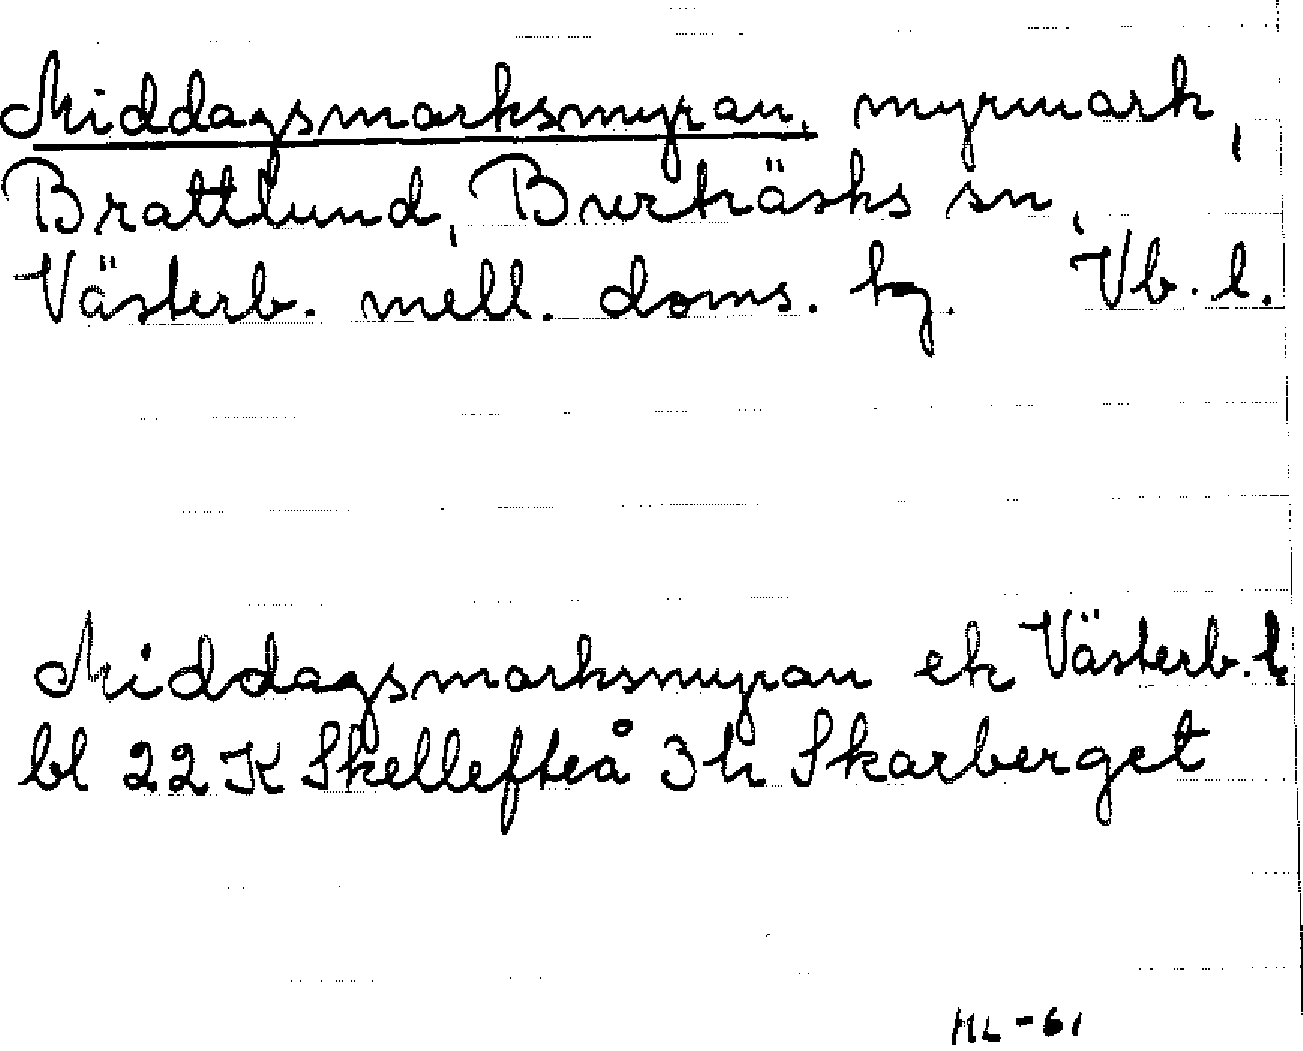 Middagsmarksmyran, myrmark,
Brattlund, Burträsks sn,
Västerb. mell. doms. tg. Vb. l.
Middagsmarksmyran ek Västerb. l
bl 22 K Skellefteå 3h Skarberget
HL-61